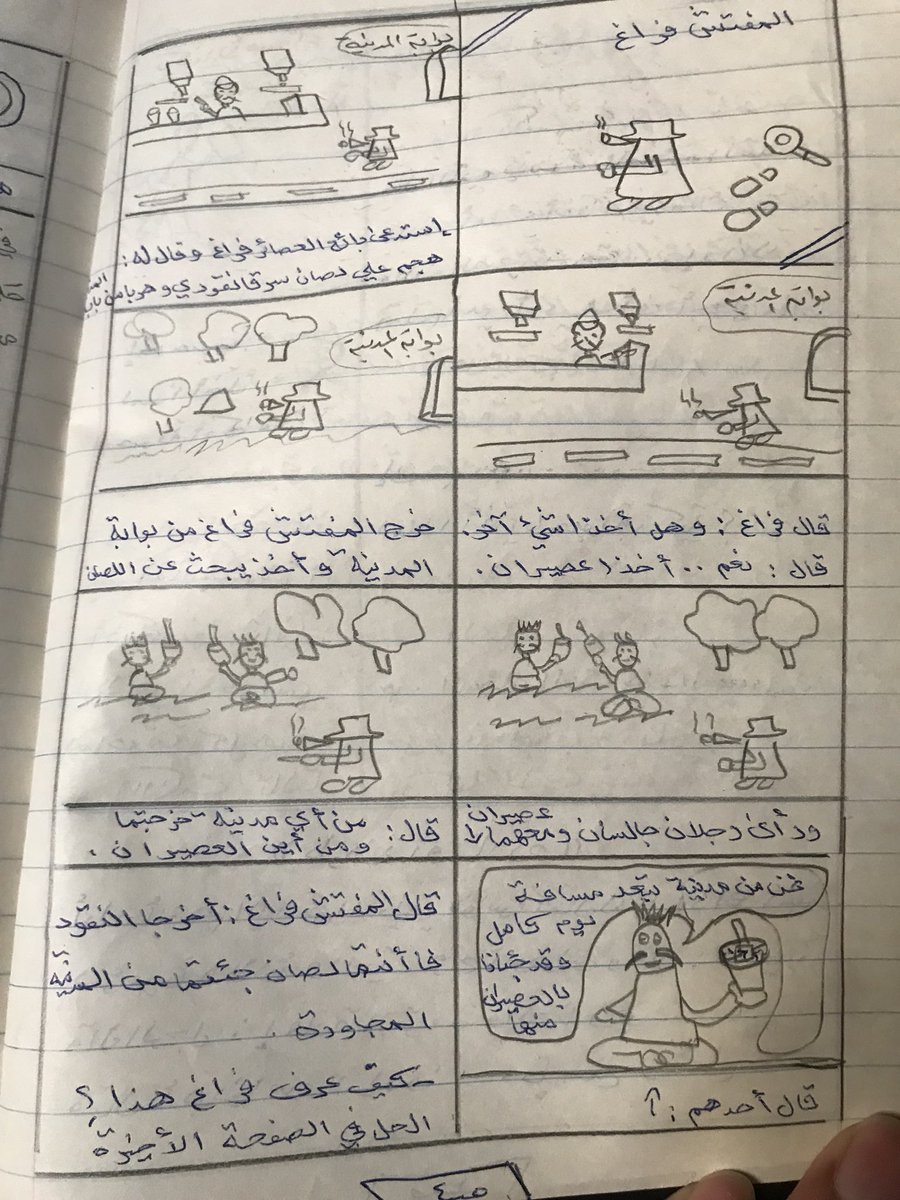 المفتش فراغ
بوابة المدينة
استدعى بائع العصائر فراغ وقال له:
هجم علي لصان سرقا نقودي وهربا من
بوابة المدينة
قال فراغ: وهل أخذا شيء آخر.
قال: نعم .. أخذا عصيران.
بوابة المدينة
خرج المفتش فراغ من بوابة
المدينة وأخذ يبحث عن اللصان
ورأى رجلان جالسان ومعهما
عصيران
قال: من أي مدينة خرجتما
ومن أين العصيران.
نحن من مدينة تبعد مسافة
يوم كامل
وقد جئنا
بالعصيران
منها
قال أحدهم: ↑
قال المفتش فراغ: أخرجا النقود
فأنتما لصان جئتما من المدينة
المجاورة.
- كيف عرف فراغ هذا؟
الحل في الصفحة الأخيرة